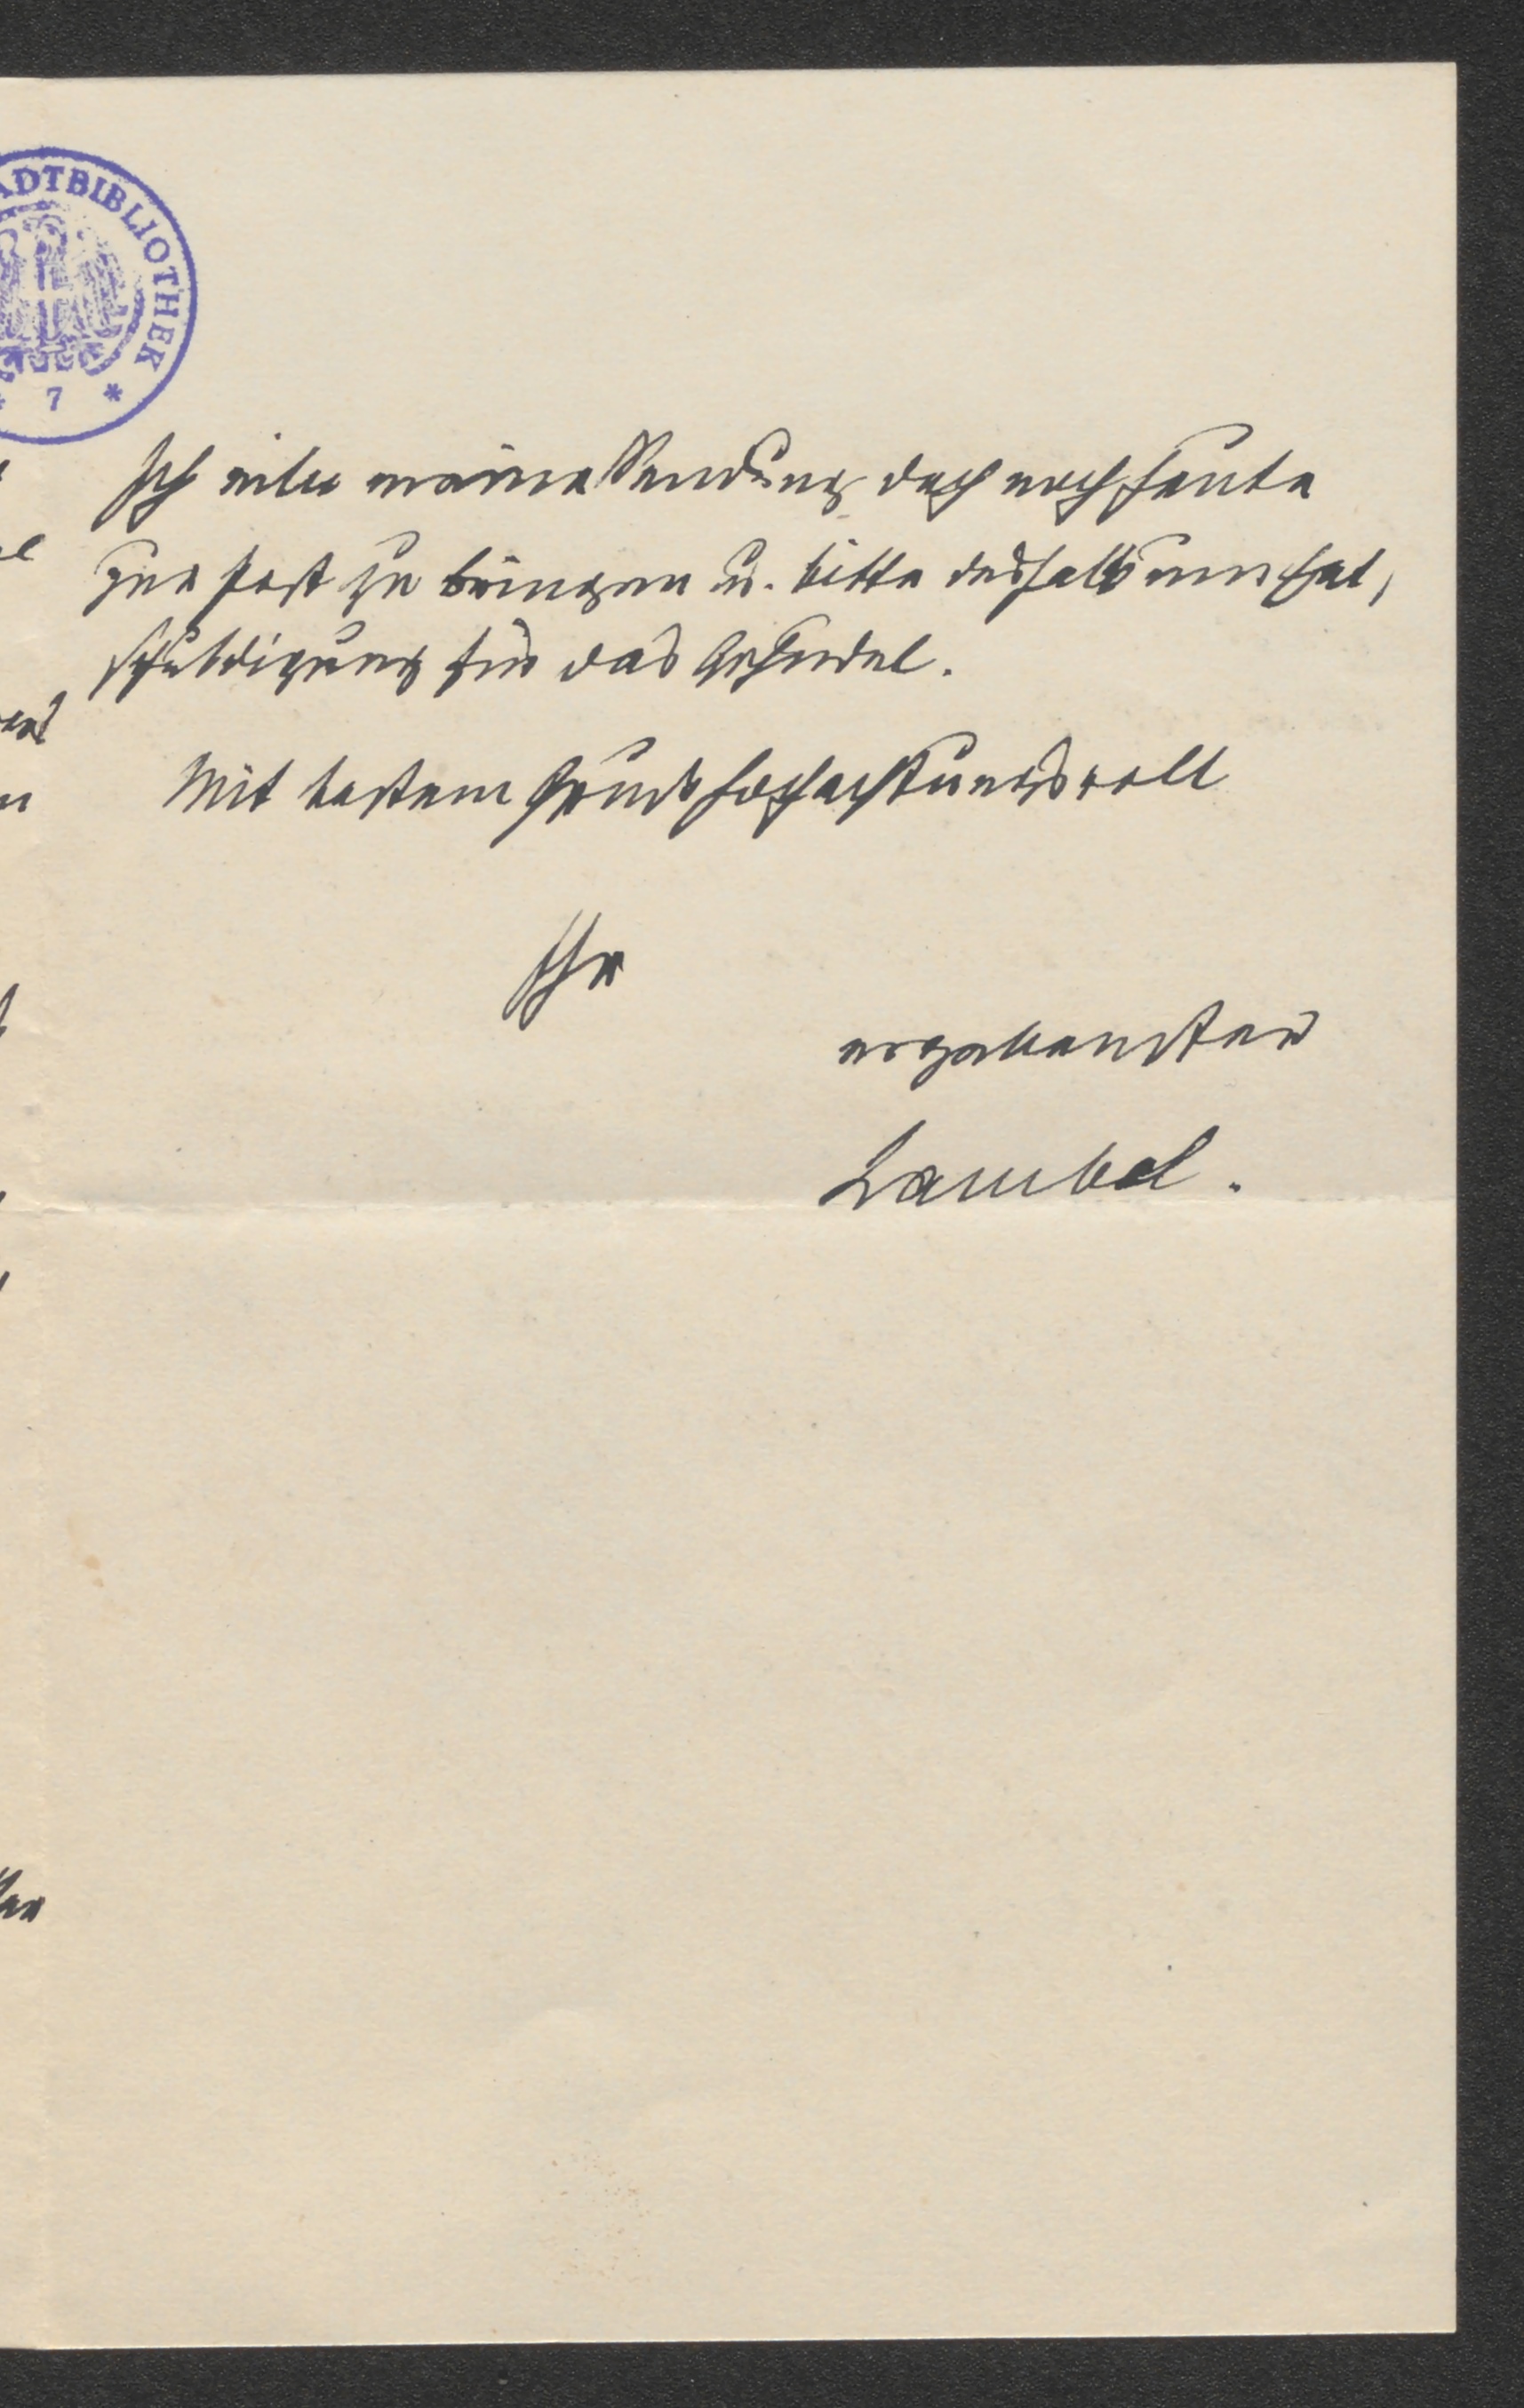 ADTBIBLIOTHEK
* 7 *
Ich eile meine Sendung doch noch heute
zur Post zu bringen u. bitte deshalb um Ent-
schuldigung für das Gehudel.
Mit bestem Gruß hochachtungsvoll
Ihr
ergebenster
Lambel.